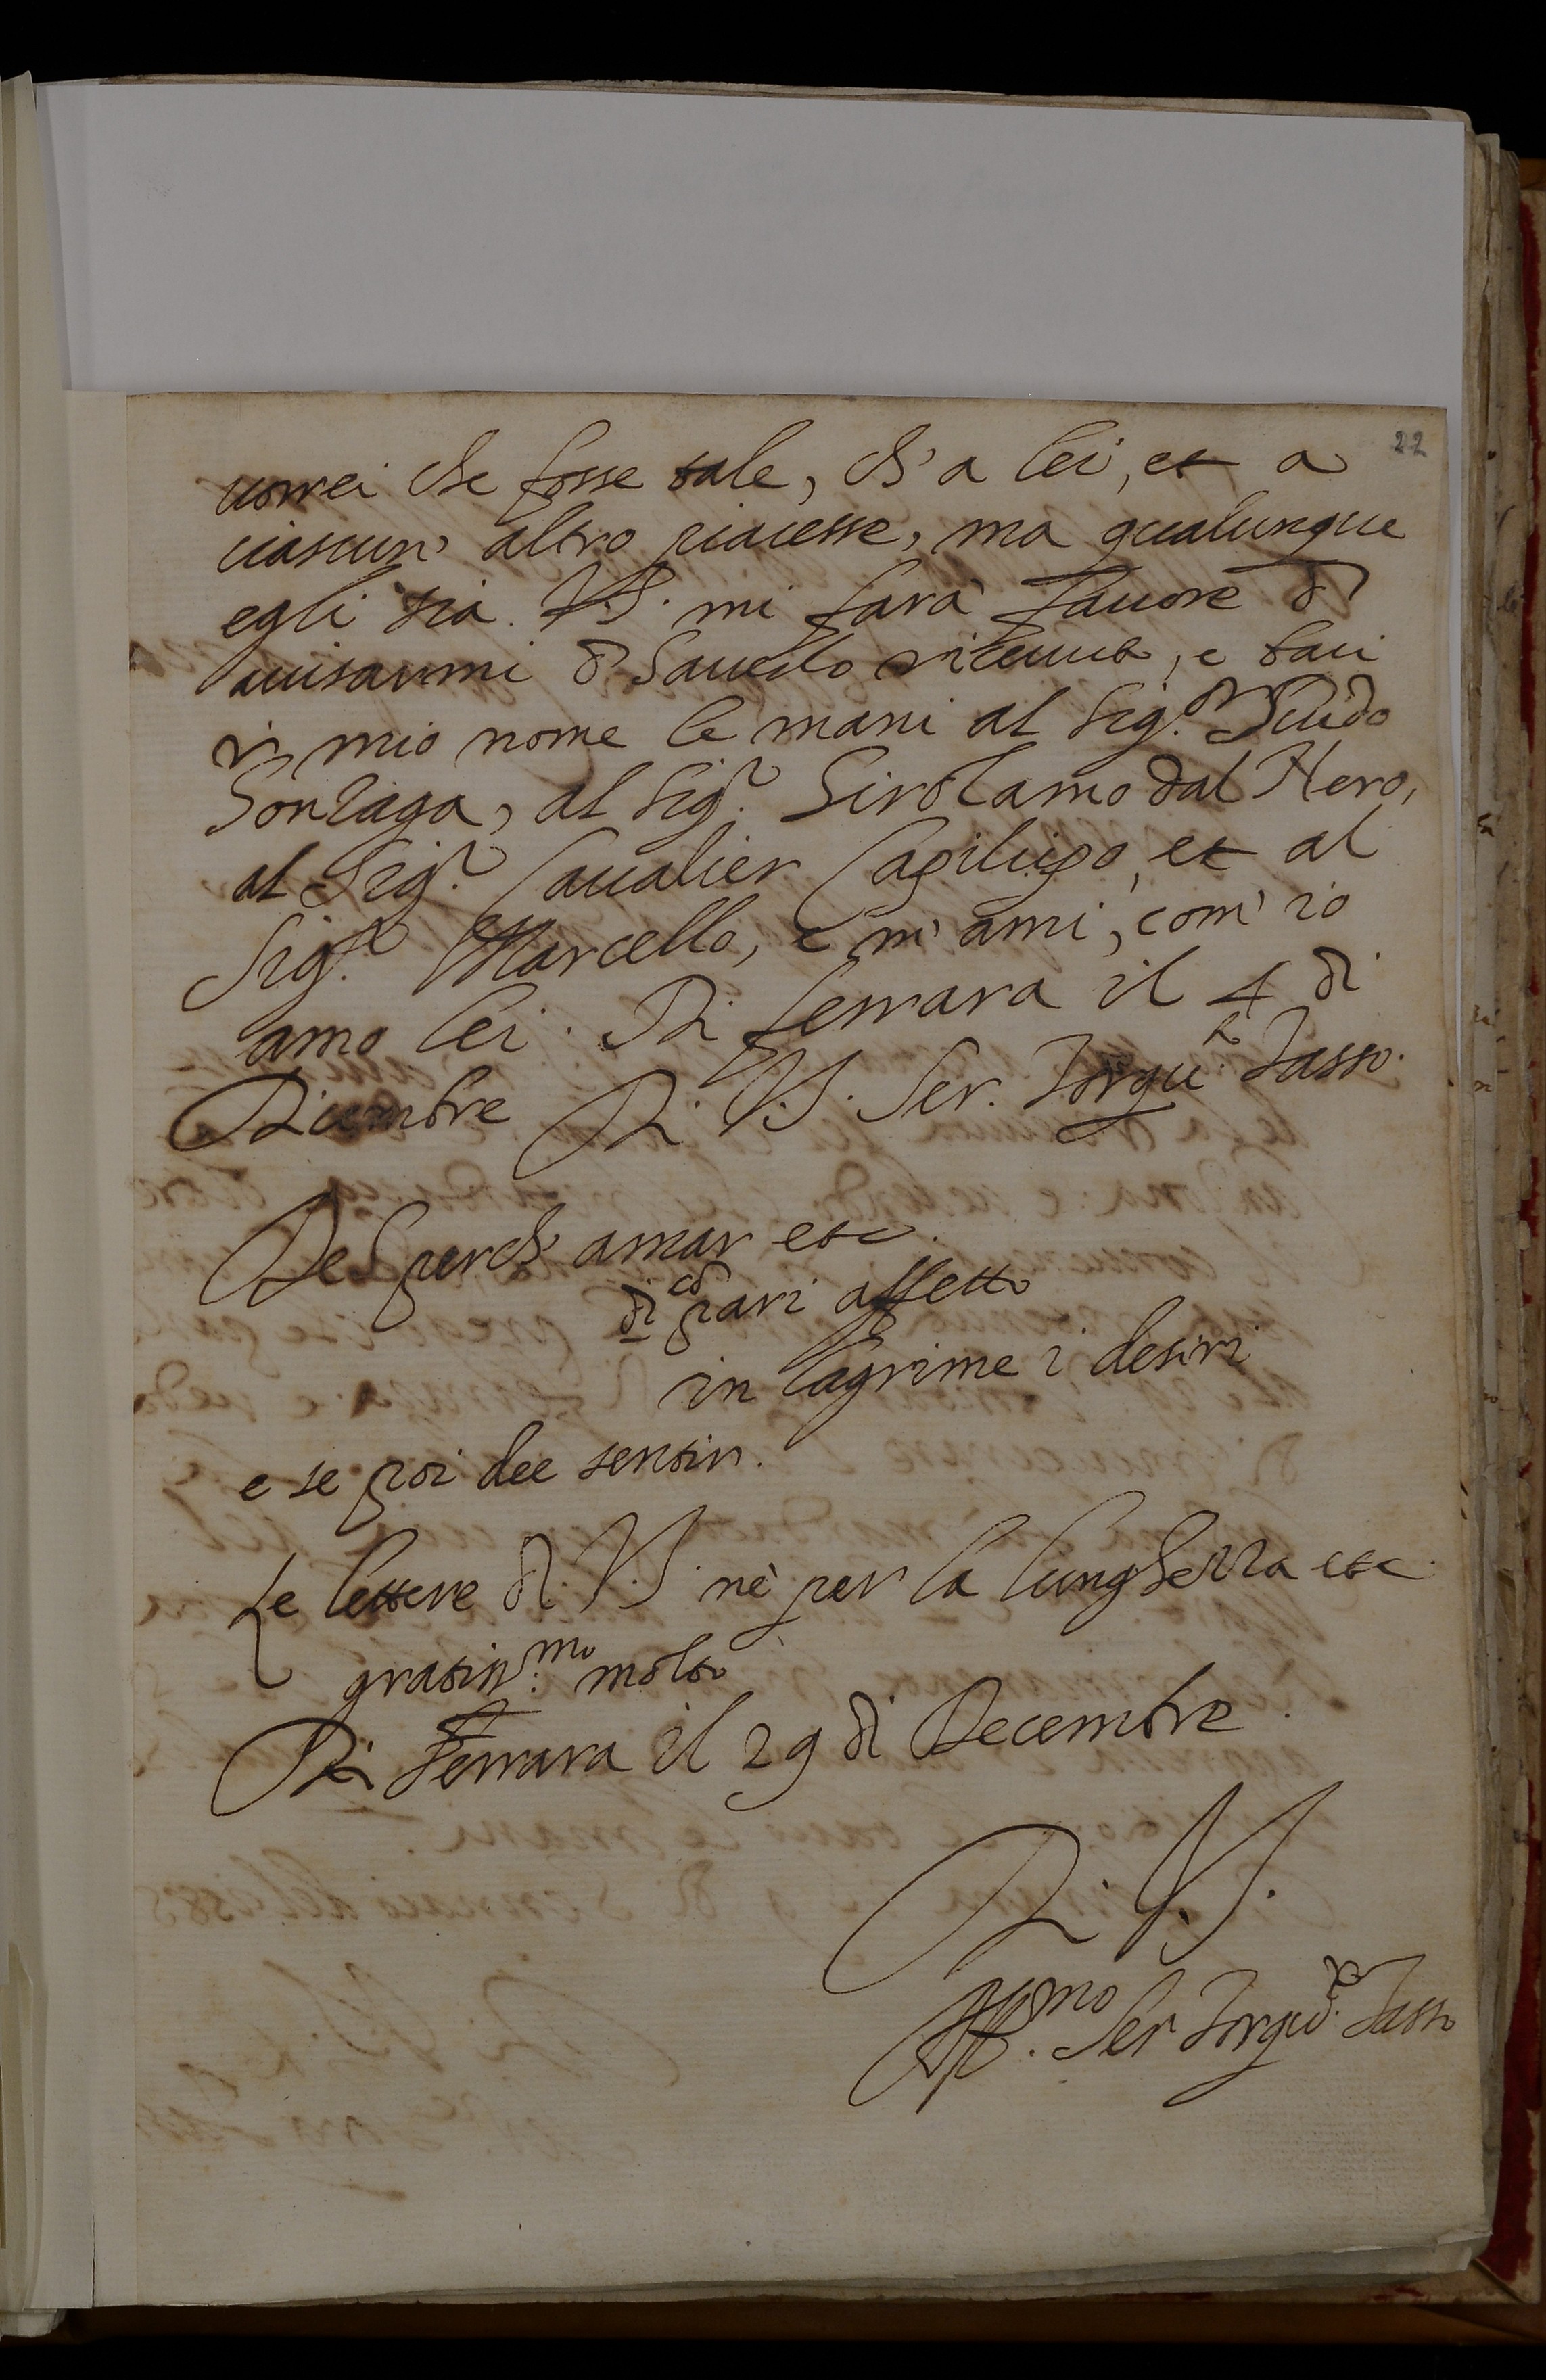 22
vorrei che fosse tale, ch'a lei, et a
ciascun' altro piacesse, ma qualunque
egli sia. V.S. mi farà favore di
avisarmi d'haverlo ricevuto, e baci
in mio nome le mani al Sig.or Scipio
Gonzaga, al Sig.r Girolamo dal Nero,
al Sig.r Cavalier Capilupo, et al
Sig.r Marcello, e m'ami, com'io
amo lei. Di Ferrara il 4 di
Dicembre Di. V.S. Ser. Torqu.to Tasso.
Deh perch' amar etc.
di co pari affetto
in lagrime i desiri
e se poi dee sentir.
Le lettere di V.S. nè per la lunghezza etc.
gratiss.mo molto
Di Ferrara il 29 di Decembre.
Di. V.S.
Aff.mo Ser Torqu.to Tasso